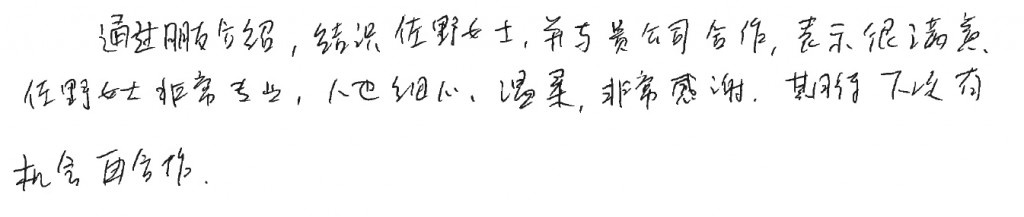 通过朋友介绍,结识佐野女士,并与贵公司合作,表示很满意、
佐野女士非常专业,人也细心、温柔,非常感谢.期待下次有
机会再合作.